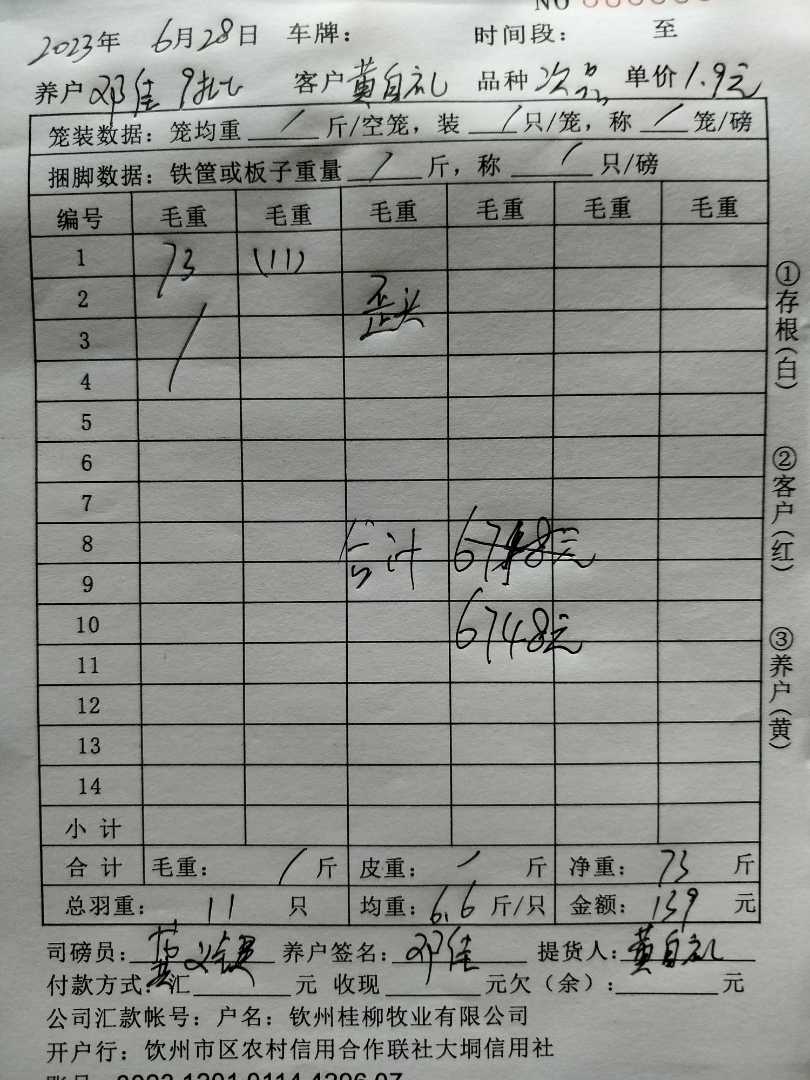 NO
2023年 6月28日 车牌： 时间段： 至
养户 邓佳 9批 客户 黄自礼 品种 次品 单价 1.9元
笼装数据：笼均重 / 斤/空笼，装 / 只/笼，称 / 笼/磅
捆脚数据：铁筐或板子重量 / 斤，称 / 只/磅
编号 毛重 毛重 毛重 毛重 毛重 毛重
1 73 (11)
2 歪头
3 /
4
5
6
7
8 合计
9
10 6748元
11
12
13
14
小计
合计 毛重： / 斤 皮重： / 斤 净重： 73 斤
总羽重： 11 只 均重： 6.6 斤/只 金额： 139 元
司磅员： 养户签名： 邓佳 提货人： 黄自礼
付款方式：汇 元 收现 元欠（余）： 元
公司汇款帐号：户名：钦州桂柳牧业有限公司
开户行：钦州市区农村信用合作联社大垌信用社
①存根（白） ②客户（红） ③养户（黄）